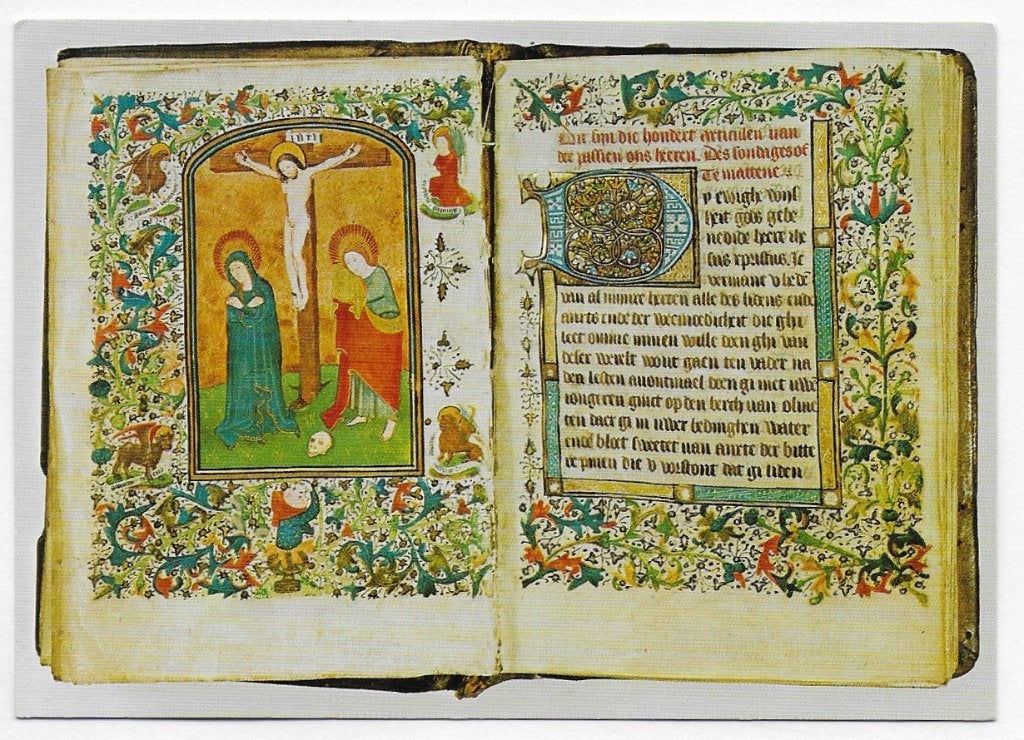 INRI
Dit sijn die hondert articulen van
der passien ons heeren. Des sondages
Te mattene
y ewighe wijs
heit gods gebe
nedide heere ihe
sus cpristus. Ic
vermane v bi de
van al minre herten alle des lidens ende
anxts ende der oetmoedicheit die ghi
leet omme minen wille doen ghi van
deser werelt wout gaen ten vader na
den lesten auontmael doen gi met uwe
iongeren ginct op den berch van oliue
ten daer gi in uwer bedinghen water
ende bloet sweetet van anxte der bitte
re pinen die v